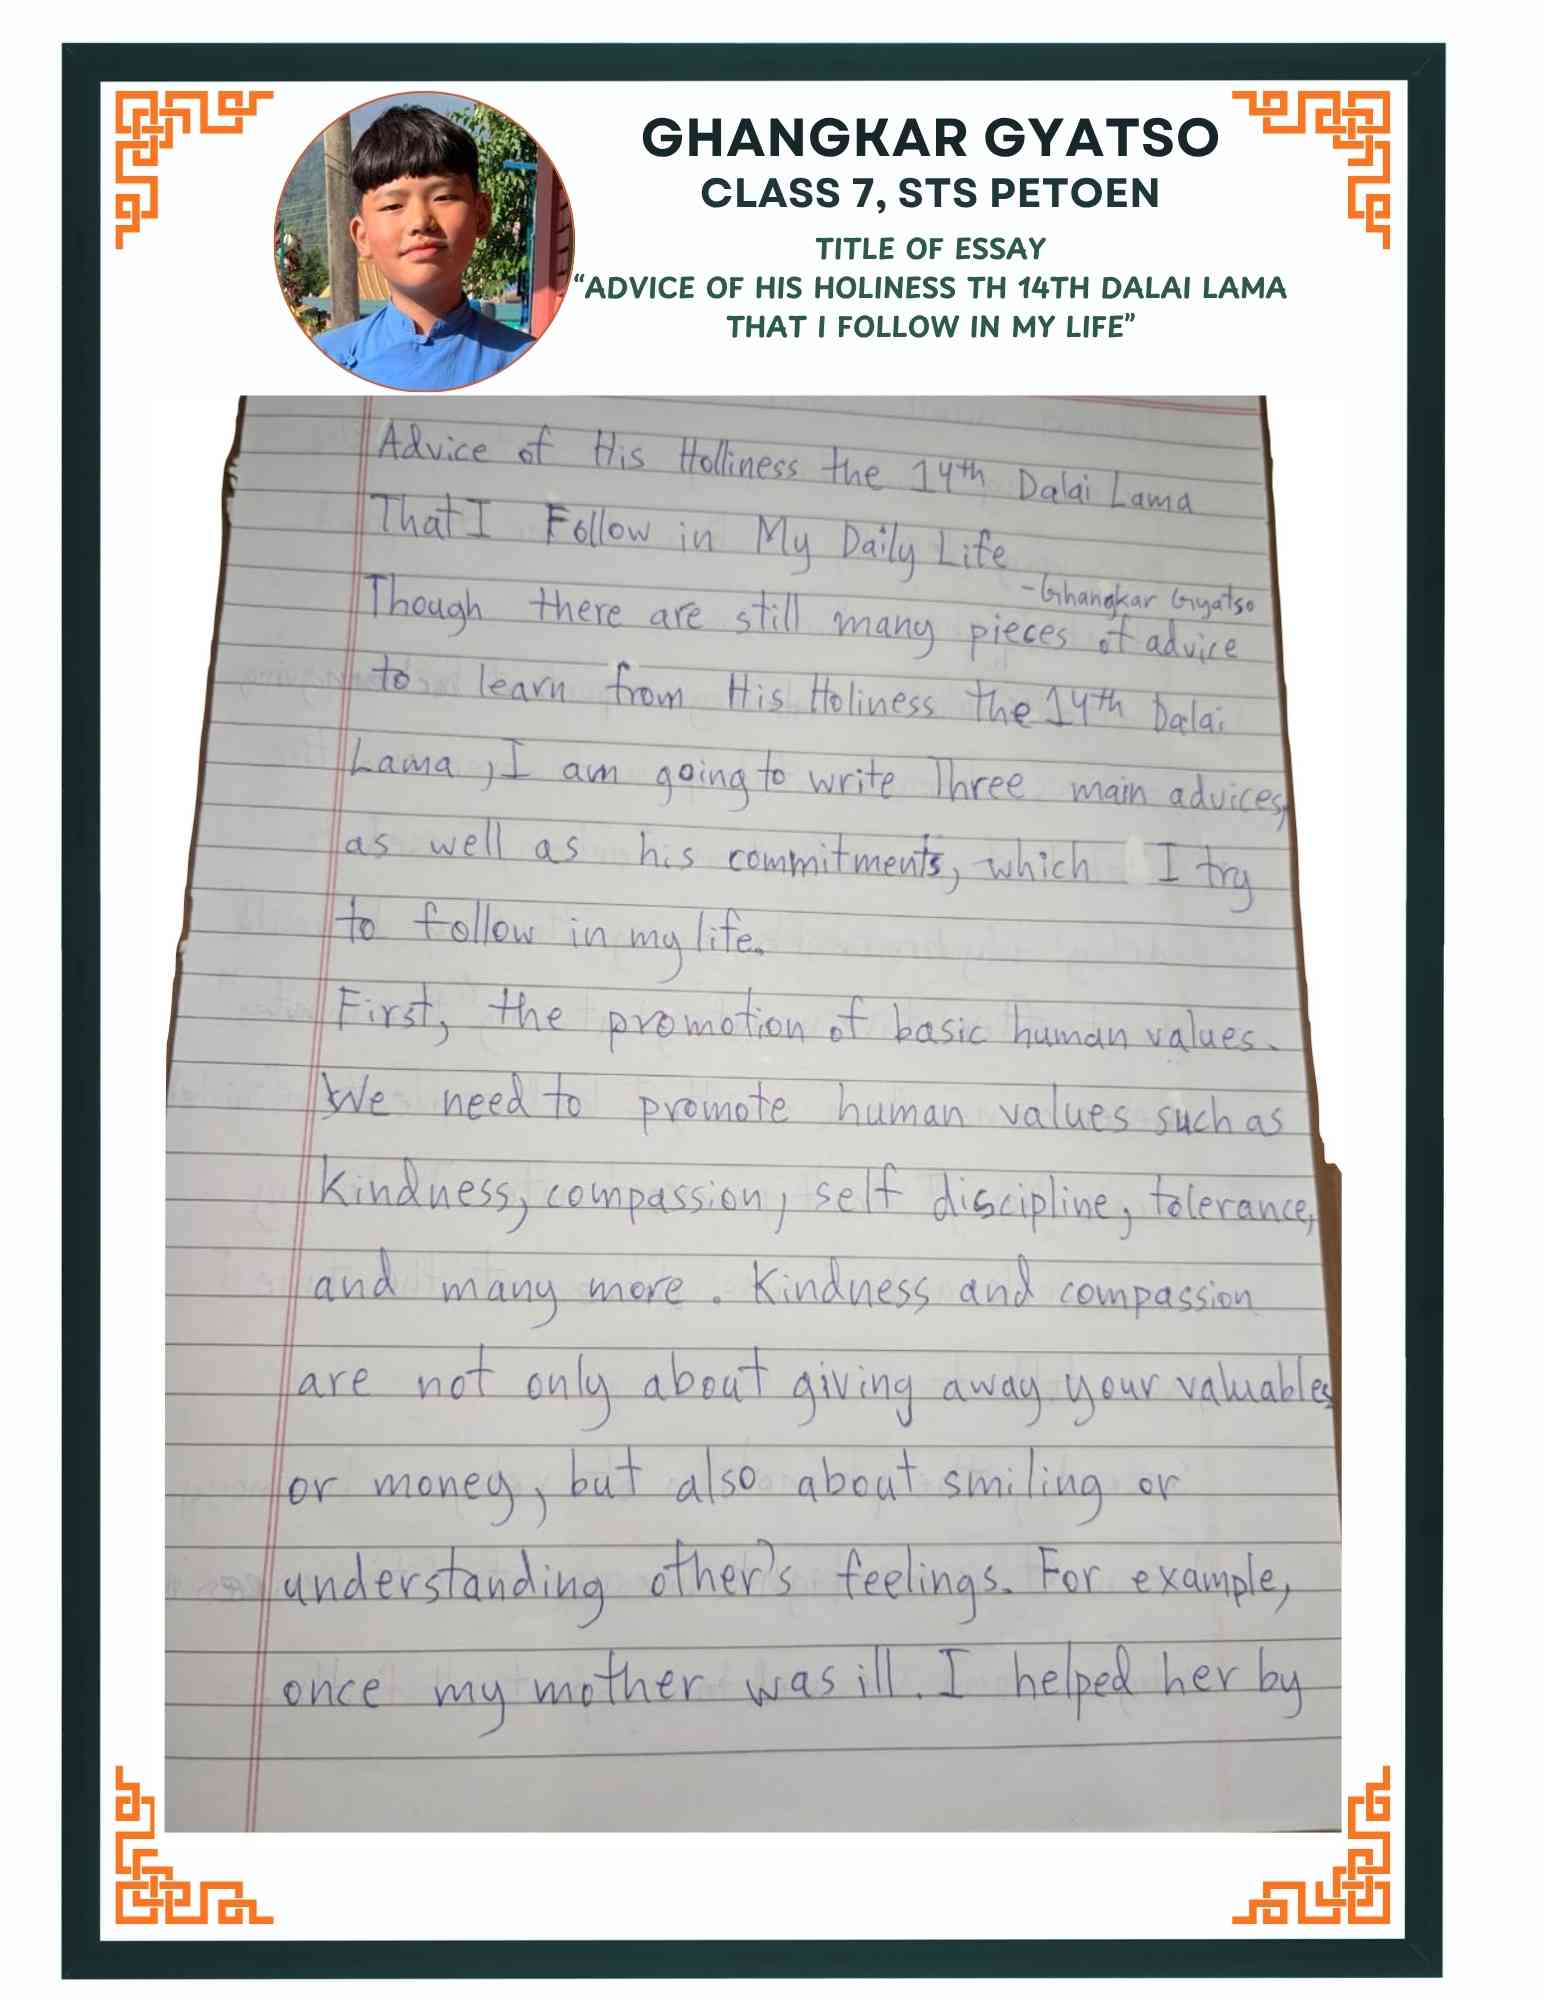 GHANGKAR GYATSO
CLASS 7, STS PETOEN
TITLE OF ESSAY
“ADVICE OF HIS HOLINESS TH 14TH DALAI LAMA
THAT I FOLLOW IN MY LIFE”
Advice of His Holliness the 14th Dalai Lama
That I Follow in My Daily Life
-Ghangkar Gyatso
Though there are still many pieces of advice
to learn from His Holiness the 14th Dalai
Lama, I am going to write Three main advices,
as well as his commitments, which I try
to follow in my life.
First, the promotion of basic human values.
We need to promote human values such as
Kindness, compassion, self discipline, tolerance,
and many more. Kindness and compassion
are not only about giving away your valuables
or money, but also about smiling or
understanding other's feelings. For example,
once my mother was ill. I helped her by